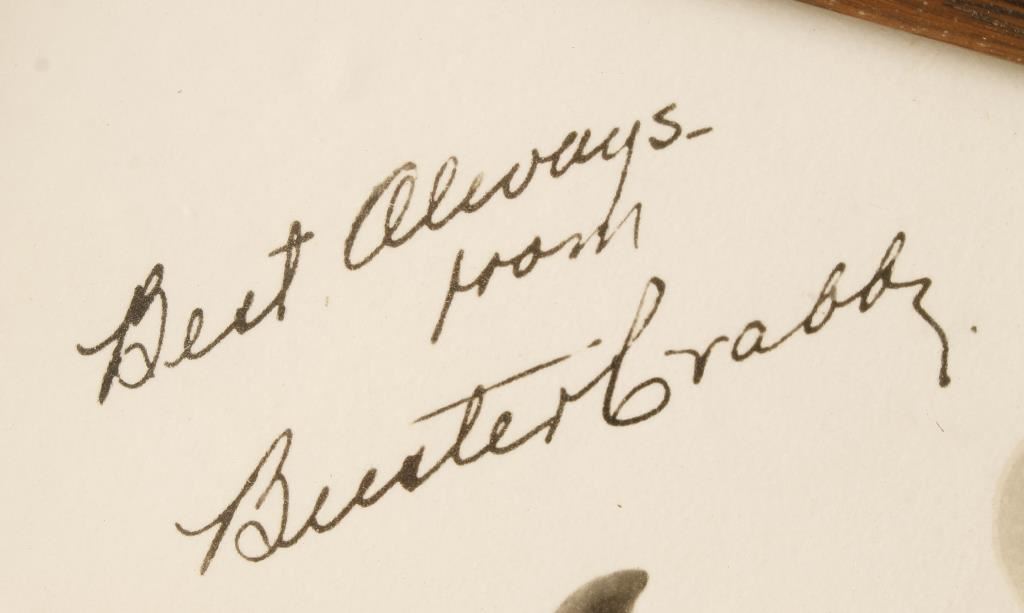 Best Always-
from
Buster Crabby.